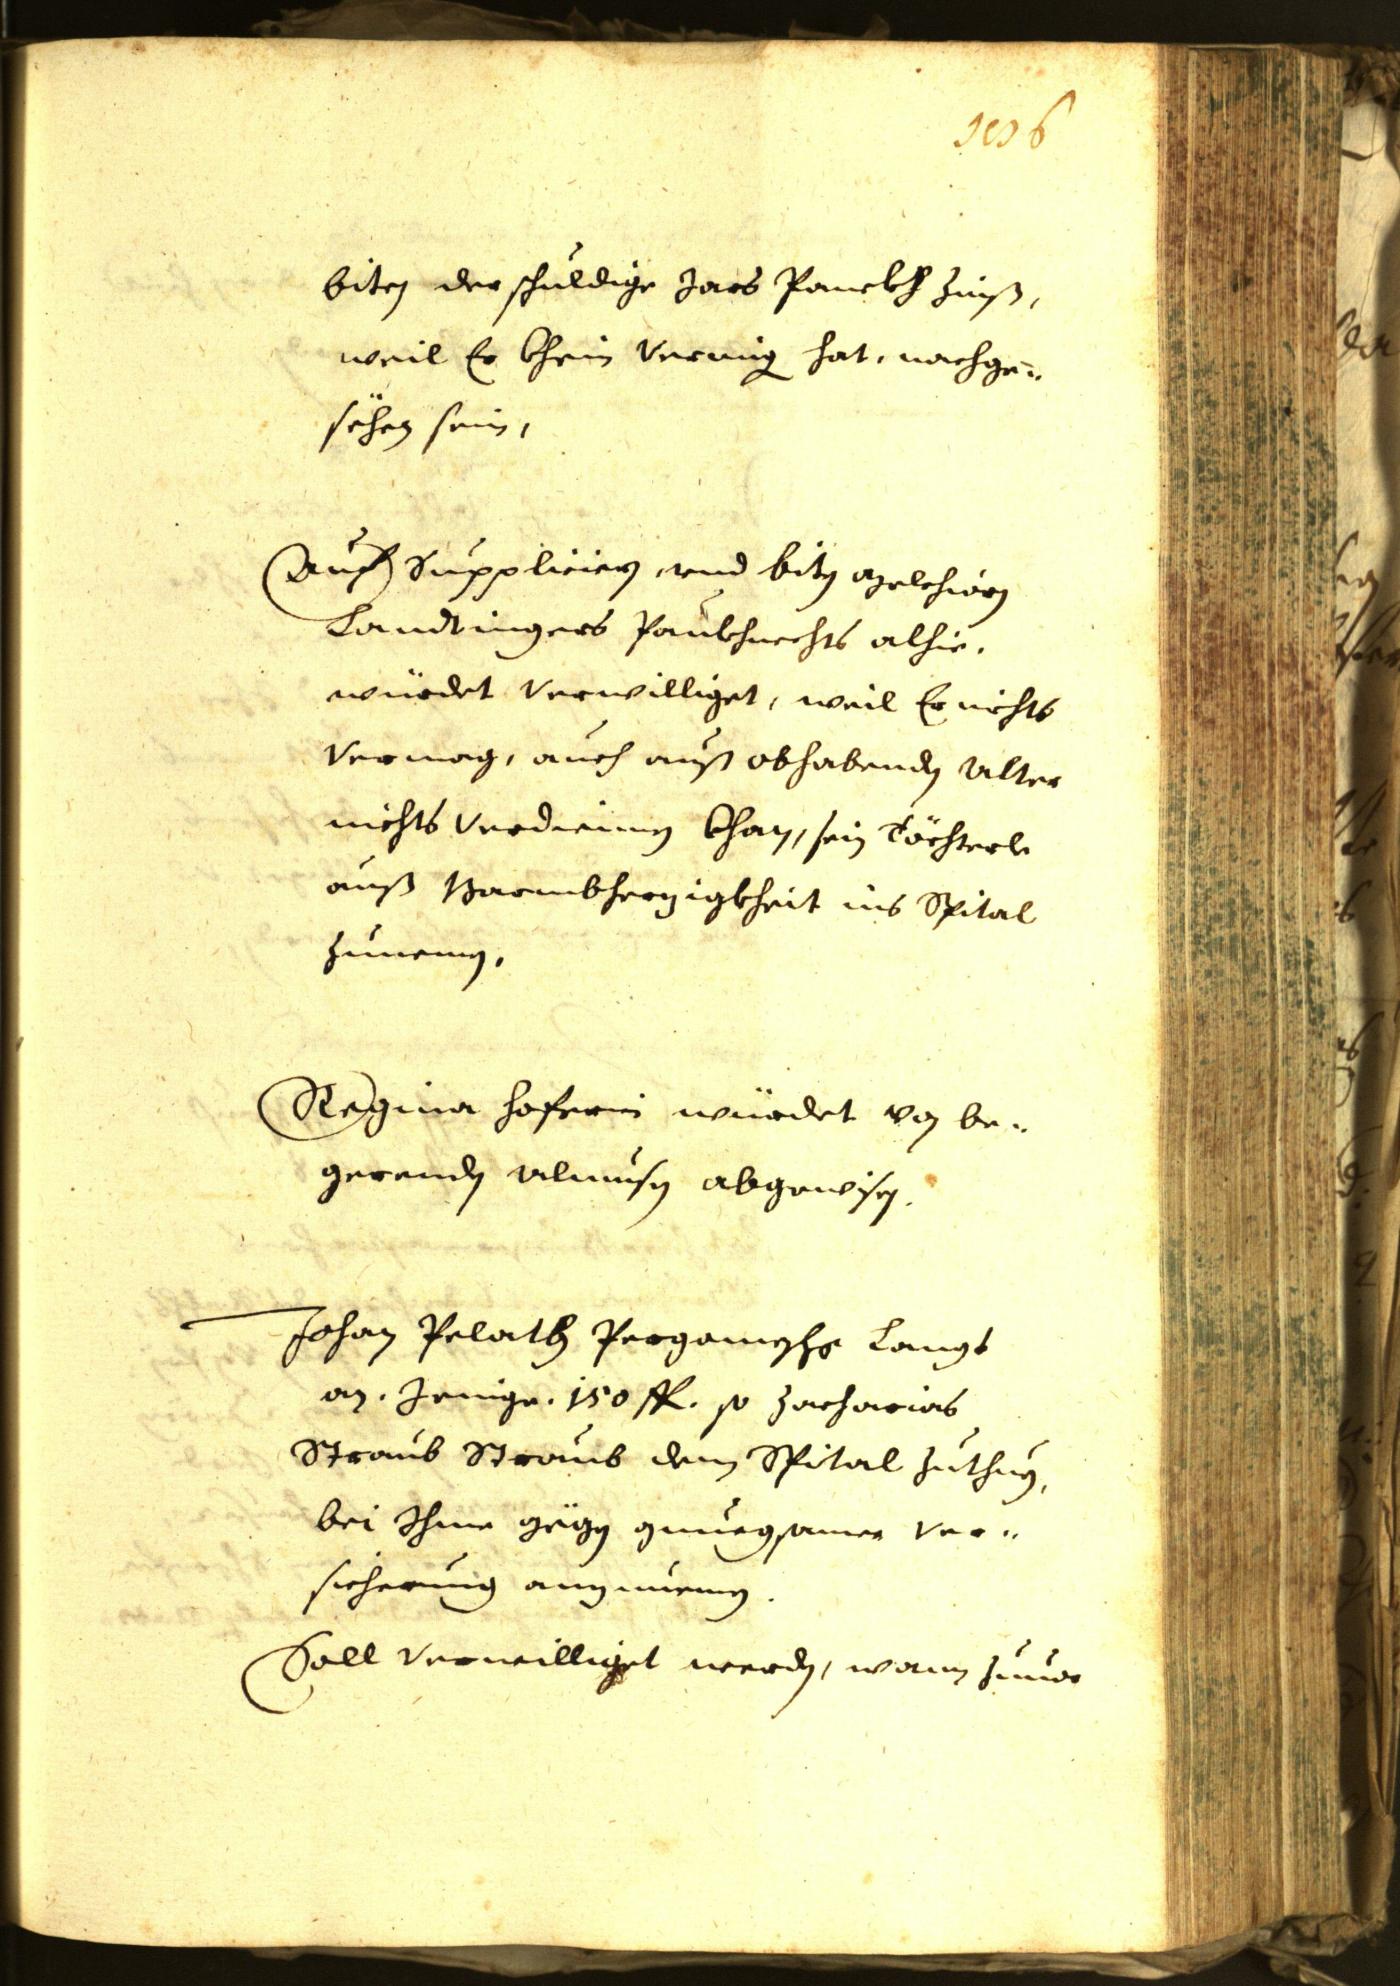 106
biten der schuldige Jars Panckh Zinß,
weil Er khein Vermig hat, nachge¬
sëhen sein,
Auf Suppliciern, vnd biten Melchiorn
Landtingers Paukhnechts alhie.
würdet Verwilliget, weil Er nichts
Vermag, auch auß obhabenden Alter
nichts Verdienen khan, sein Töchterle
auß Barmbherzigkheit ins Spital
Zunemen.
Regina Hoferin würdet von be¬
gerenden Almusen abgewisen.
Johan Pelath Pergameneher Langt
an. Jenige. 150 fl. so Zacharias
Straub Straub dem Spital Zuthun,
bei Ihme gëgen gnuegsamer Ver¬
sicherung anzunemen.
Soll Verwilliget werden, wann Zuuor